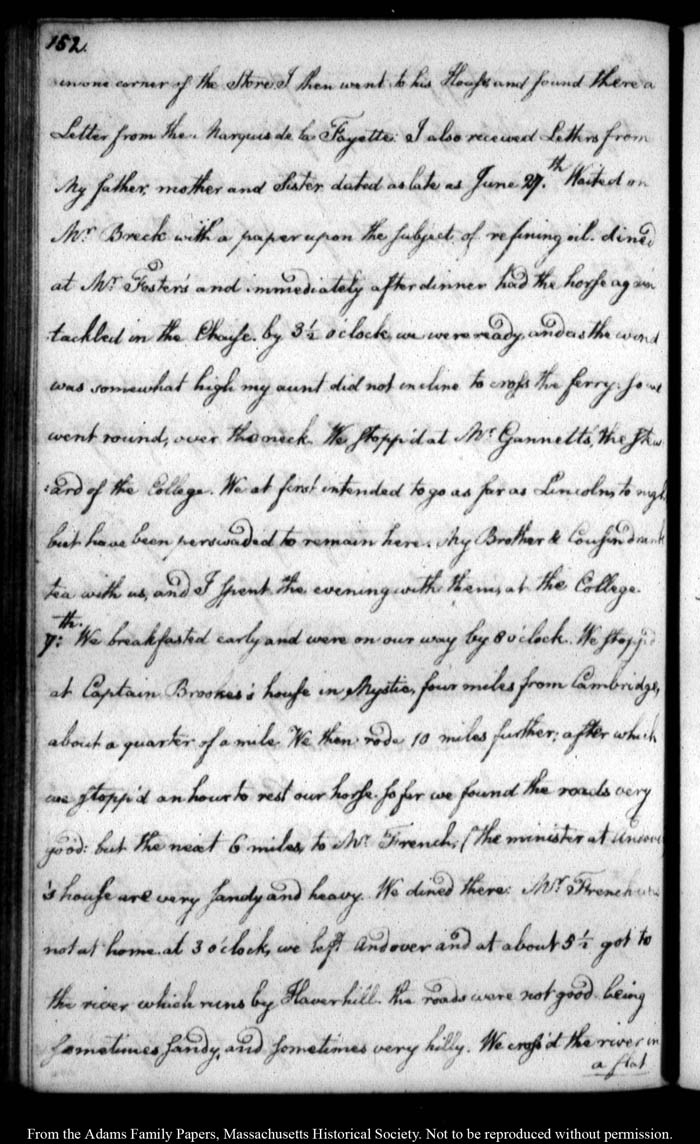 152.
in one corner of the Store. I then went to his House and found there a
Letter from the Marquis de la Fayette: I also received Letters from
My father, mother and Sister dated as late as June 27.th Waited on
Mr. Breck with a paper upon the subject of refining oil. dined
at Mr. Foster's and immediately after dinner had the horse again
tackled in the Chaise. by 3 1/2 o'clock, we were ready, and as the wind
was somewhat high my aunt did not incline to cross the ferry. so we
went round, over the neck. We stopp'd at Mr. Gannett's, the Stew
:ard of the College. We at first intended to go as far as Lincoln, to night,
but have been perswaded to remain here. My Brother & Cousin drank
tea with us, and I spent the evening with them, at the College.
7:th. We breakfasted early and were on our way by 8 o'clock. We stopp'd
at Captain Brookes's house in Mystic, four miles from Cambridge,
about a quarter of a mile. We then rode 10 miles further; after which
we stopp'd an hour to rest our horse. so far we found the roads very
good: but the next 6 miles, to Mr. French, (the minister at Andover)
's house are very sandy and heavy. We dined there: Mr. French was
not at home. at 3 o'clock, we left Andover and at about 5 1/2 got to
the river which runs by Haverhill. the roads were not good. being
sometimes sandy, and sometimes very hilly. We cross'd the river in
a flat
From the Adams Family Papers, Massachusetts Historical Society. Not to be reproduced without permission.